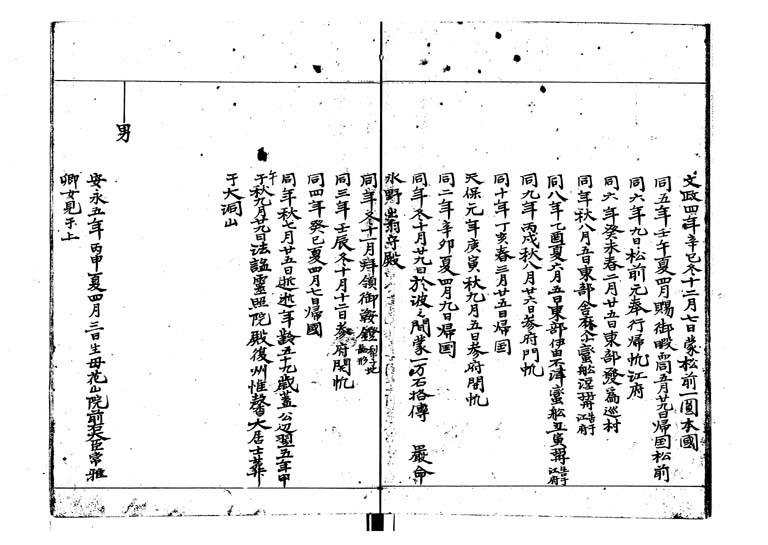 文政四年辛巳冬十二月七日蒙松前一圓本國
同五年壬午夏四月賜御暇而同五月廿九日帰国松前
同六年九日松前元奉行帰帆江府
同六年癸未春二月廿五日東部發篇巡村
同年秋八月五日東部舎
同八年乙酉夏六月五日東部
同九年丙戌秋八月廿六日参府門帆
同十年丁亥春三月廿五日帰国
天保元年庚寅秋九月五日参府開帆
同二年辛卯夏四月九日帰国
同年冬十月廿九日於波之間蒙一万石格傳 嚴命
水野出羽守殿
同年冬十二月拜領御鞍鐙
同三年壬辰冬十月十二日参府開帆
同四年癸巳夏四月七日帰國
同年秋七月廿五日逝逝年齡五十九歳蓋公辺翌五年甲
午秋九月廿九日法諡靈照院殿復州惟馨大居士葬
于大洞山
男
安永五年丙申夏四月三日生母花山院前大臣常雅
卿女見于上